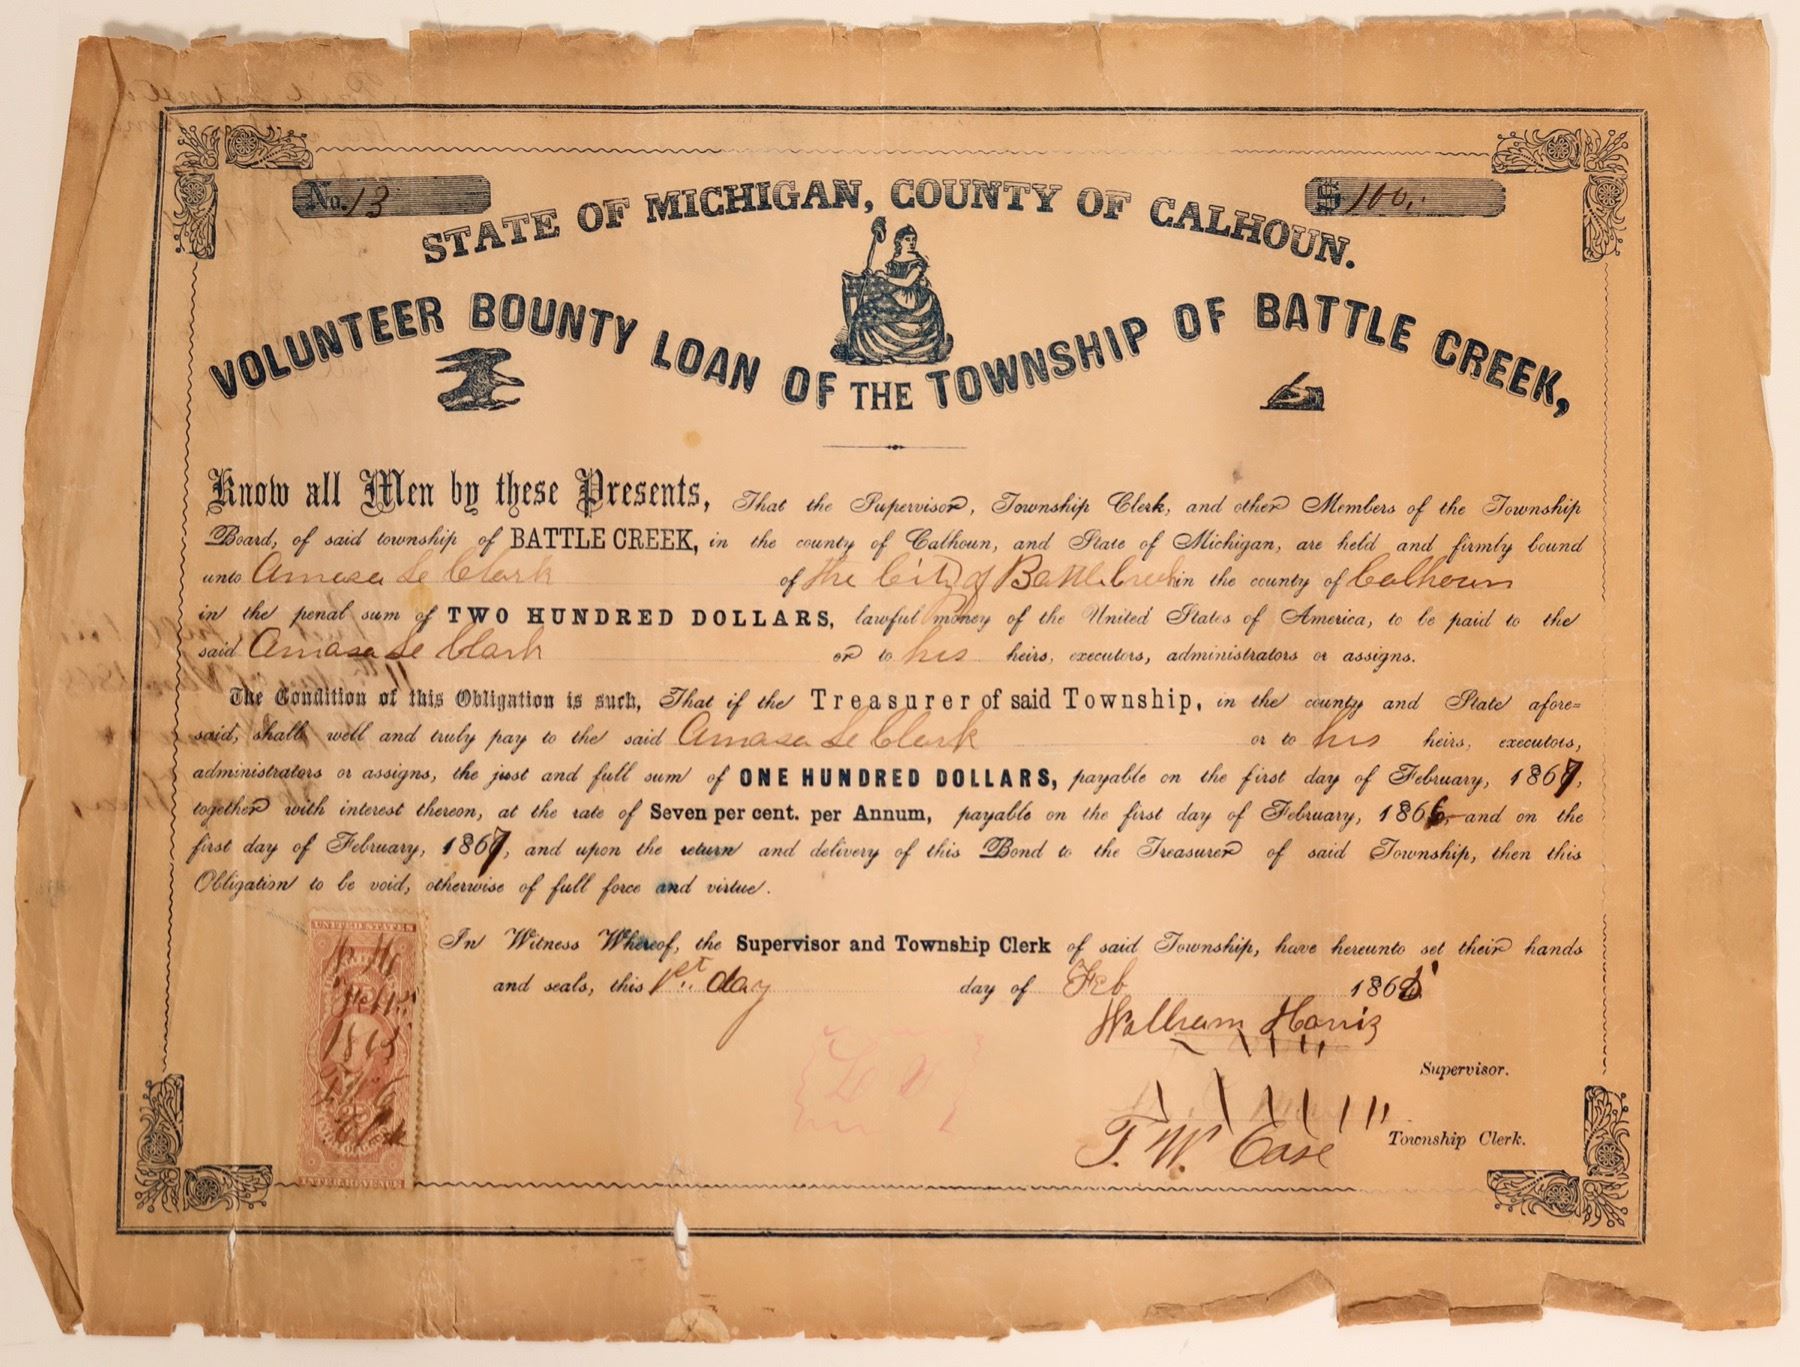 No. 13
$ 100.
STATE OF MICHIGAN, COUNTY OF CALHOUN.
VOLUNTEER BOUNTY LOAN OF THE TOWNSHIP OF BATTLE CREEK,
Know all Men by these Presents, That the Supervisor, Township Clerk, and other Members of the Township
Board, of said township of BATTLE CREEK, in the county of Calhoun, and State of Michigan, are held and firmly bound
unto Amasa Le Clark of the City of Battle Creek in the county of Calhoun
in the penal sum of TWO HUNDRED DOLLARS, lawful money of the United States of America, to be paid to the
said Amasa Le Clark or to his heirs, executors, administrators or assigns.
The Condition of this Obligation is such, That if the Treasurer of said Township, in the county and State afore=
said, shall well and truly pay to the said Amasa Le Clark or to his heirs, executors,
administrators or assigns, the just and full sum of ONE HUNDRED DOLLARS, payable on the first day of February, 1867,
together with interest thereon, at the rate of Seven per cent. per Annum, payable on the first day of February, 1866, and on the
first day of February, 1867, and upon the return and delivery of this Bond to the Treasurer of said Township, then this
Obligation to be void, otherwise of full force and virtue.
In Witness Whereof, the Supervisor and Township Clerk of said Township, have hereunto set their hands
and seals, this 1st. day day of Feb 1865
William Harris
Supervisor.
Township Clerk.
T. W. Case
UNITED STATES
Feb 1st
1865
INTER. REVENUE